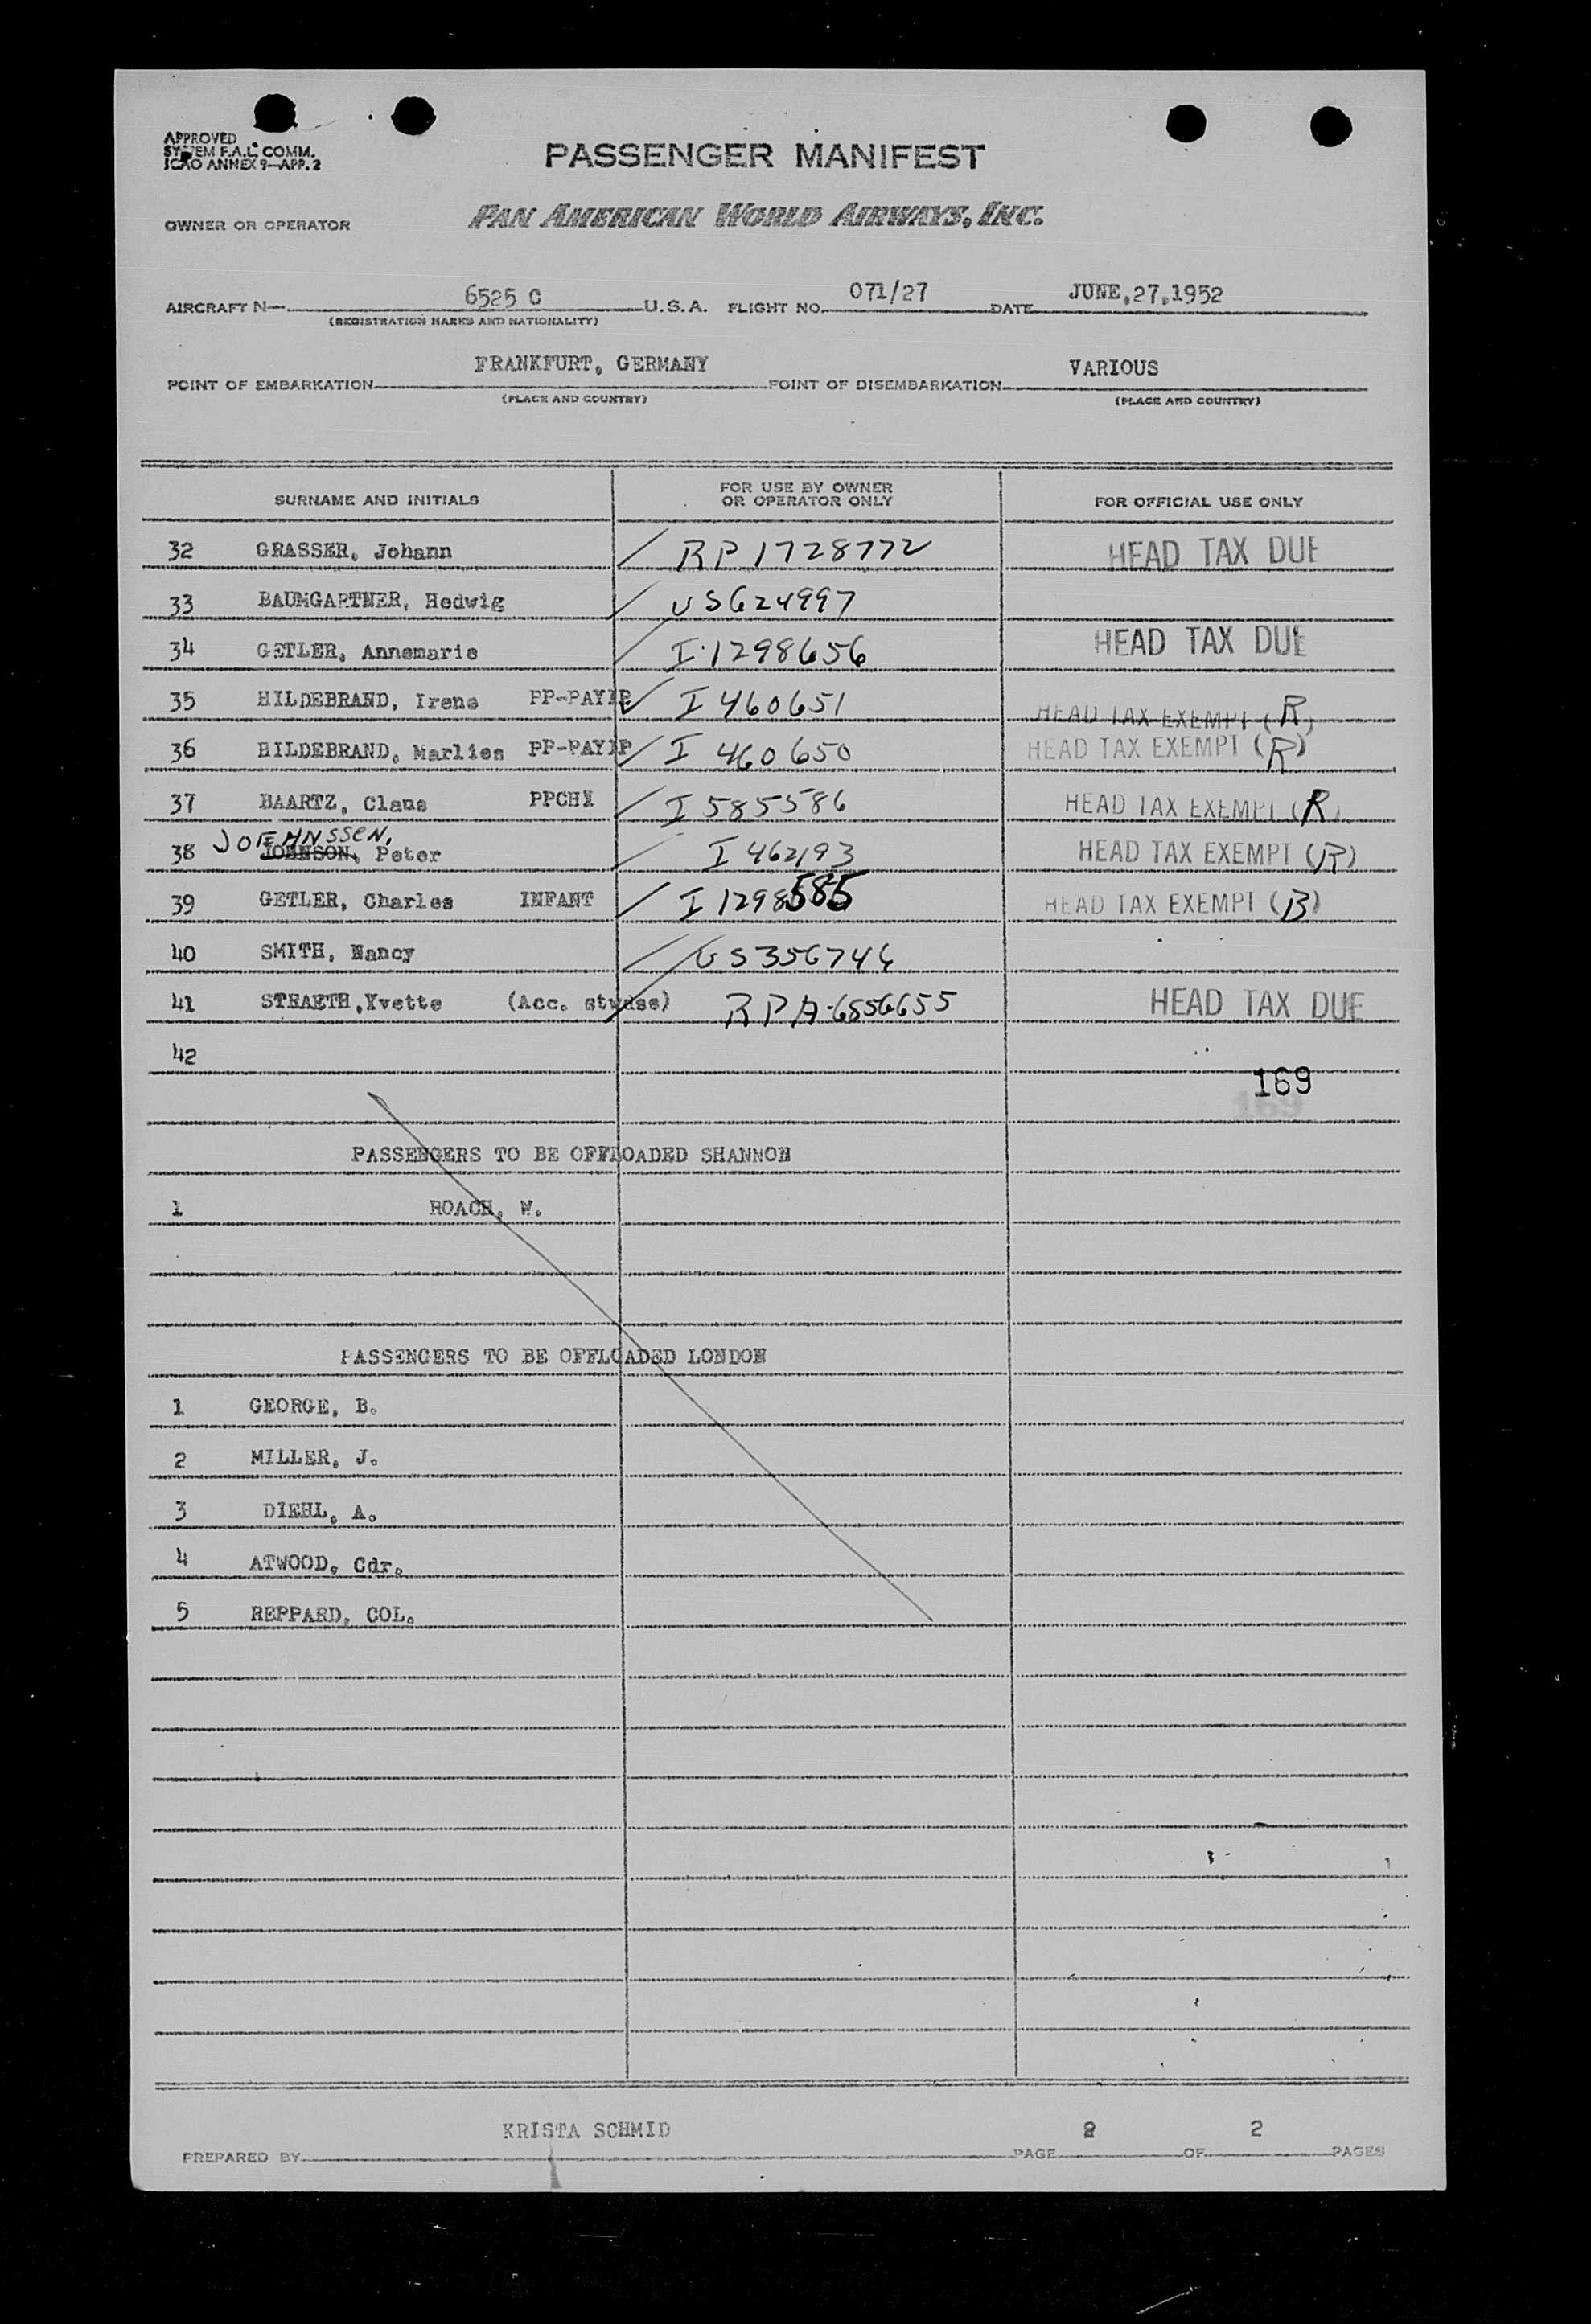 APPROVED
SYSTEM F.A.L. COMM.
ICAO ANNEX 9—APP. 2
PASSENGER MANIFEST
OWNER OR OPERATOR PAN AMERICAN WORLD AIRWAYS, INC.
AIRCRAFT N— 6525 C U.S.A. FLIGHT NO. 071/27 DATE JUNE,27,1952
(REGISTRATION MARKS AND NATIONALITY)
FRANKFURT, GERMANY VARIOUS
POINT OF EMBARKATION POINT OF DISEMBARKATION
(PLACE AND COUNTRY) (PLACE AND COUNTRY)
SURNAME AND INITIALS FOR USE BY OWNER OR OPERATOR ONLY FOR OFFICIAL USE ONLY
32 GRASSER, Johann RP 1728772 HEAD TAX DUE
33 BAUMGARTNER, Hedwig US624997
34 GETLER, Annemarie I-1298656 HEAD TAX DUE
35 HILDEBRAND, Irene PP-PAYIP I 460651 HEAD TAX EXEMPT (R)
36 HILDEBRAND, Marlies PP-PAYIP I 460650 HEAD TAX EXEMPT (R)
37 BAARTZ, Claus PPCHI I 585586 HEAD TAX EXEMPT (R)
38 JOHNSON, Peter I 462193 HEAD TAX EXEMPT (R)
39 GETLER, Charles INFANT I 1298585 HEAD TAX EXEMPT (B)
40 SMITH, Nancy US356746
41 STRAETH,Yvette (Acc. stwdss) RPA-6856655 HEAD TAX DUE
42
169
PASSENGERS TO BE OFFLOADED SHANNON
1 ROACH, W.
PASSENGERS TO BE OFFLOADED LONDON
1 GEORGE, B.
2 MILLER, J.
3 DIEHL, A.
4 ATWOOD, Cdr.
5 REPPARD, COL.
KRISTA SCHMID 2 2
PREPARED BY PAGE OF PAGES